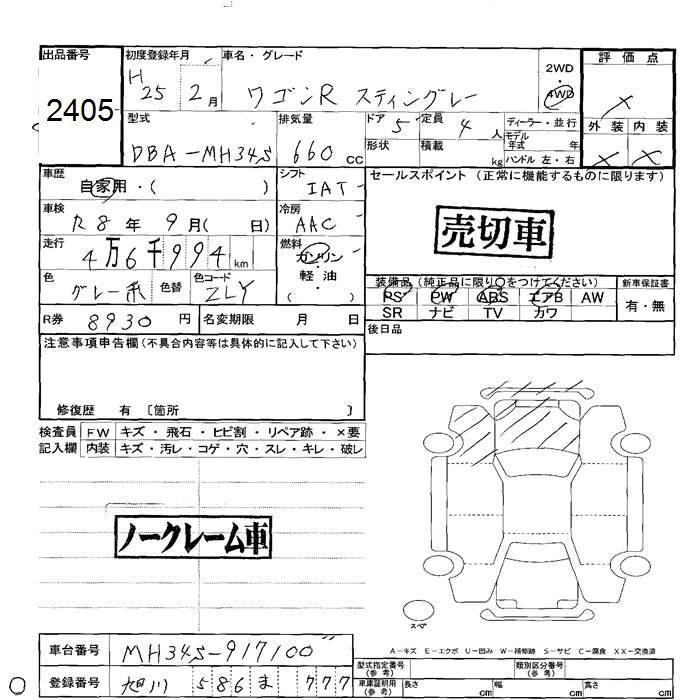 出品番号
2405
初度登録年月
H 25 2月
車名・グレード
ワゴンR スティングレー
2WD
・
4WD
評価点
×
外装 内装
× ×
型式
DBA-MH34S
排気量
660 cc
ドア 5
形状
定員 4 人
積載 kg
ディーラー・並行
モデル年式 年
ハンドル 左・右
車歴
自家用・( )
シフト
IAT
セールスポイント(正常に機能するものに限ります)
売切車
車検
R8年 9月( 日)
冷房
AAC
走行
4万6千994km
燃料
ガソリン
・
軽油
( )
色
グレー系
色替
色コード
ZLY
装備品(純正品に限り○をつけてください)
PS PW ABS エアB AW
SR ナビ TV カワ
新車保証書
有・無
R券 8930 円
名変期限 月 日
後日品
注意事項申告欄(不具合内容等は具体的に記入して下さい)
修復歴 有 〔箇所 〕
検査員記入欄
FW キズ・飛石・ヒビ割・リペア跡・×要
内装 キズ・汚レ・コゲ・穴・スレ・キレ・破レ
ノークレーム車
スペア
A-キズ E-エクボ U-凹み W-補修跡 S-サビ C-腐食 XX-交換済
車台番号 MH34S-917100
登録番号 旭川 586 ま 777
型式指定番号(参考)
類別区分番号(参考)
車庫証明用(参考) 長さ cm 幅 cm 高さ cm